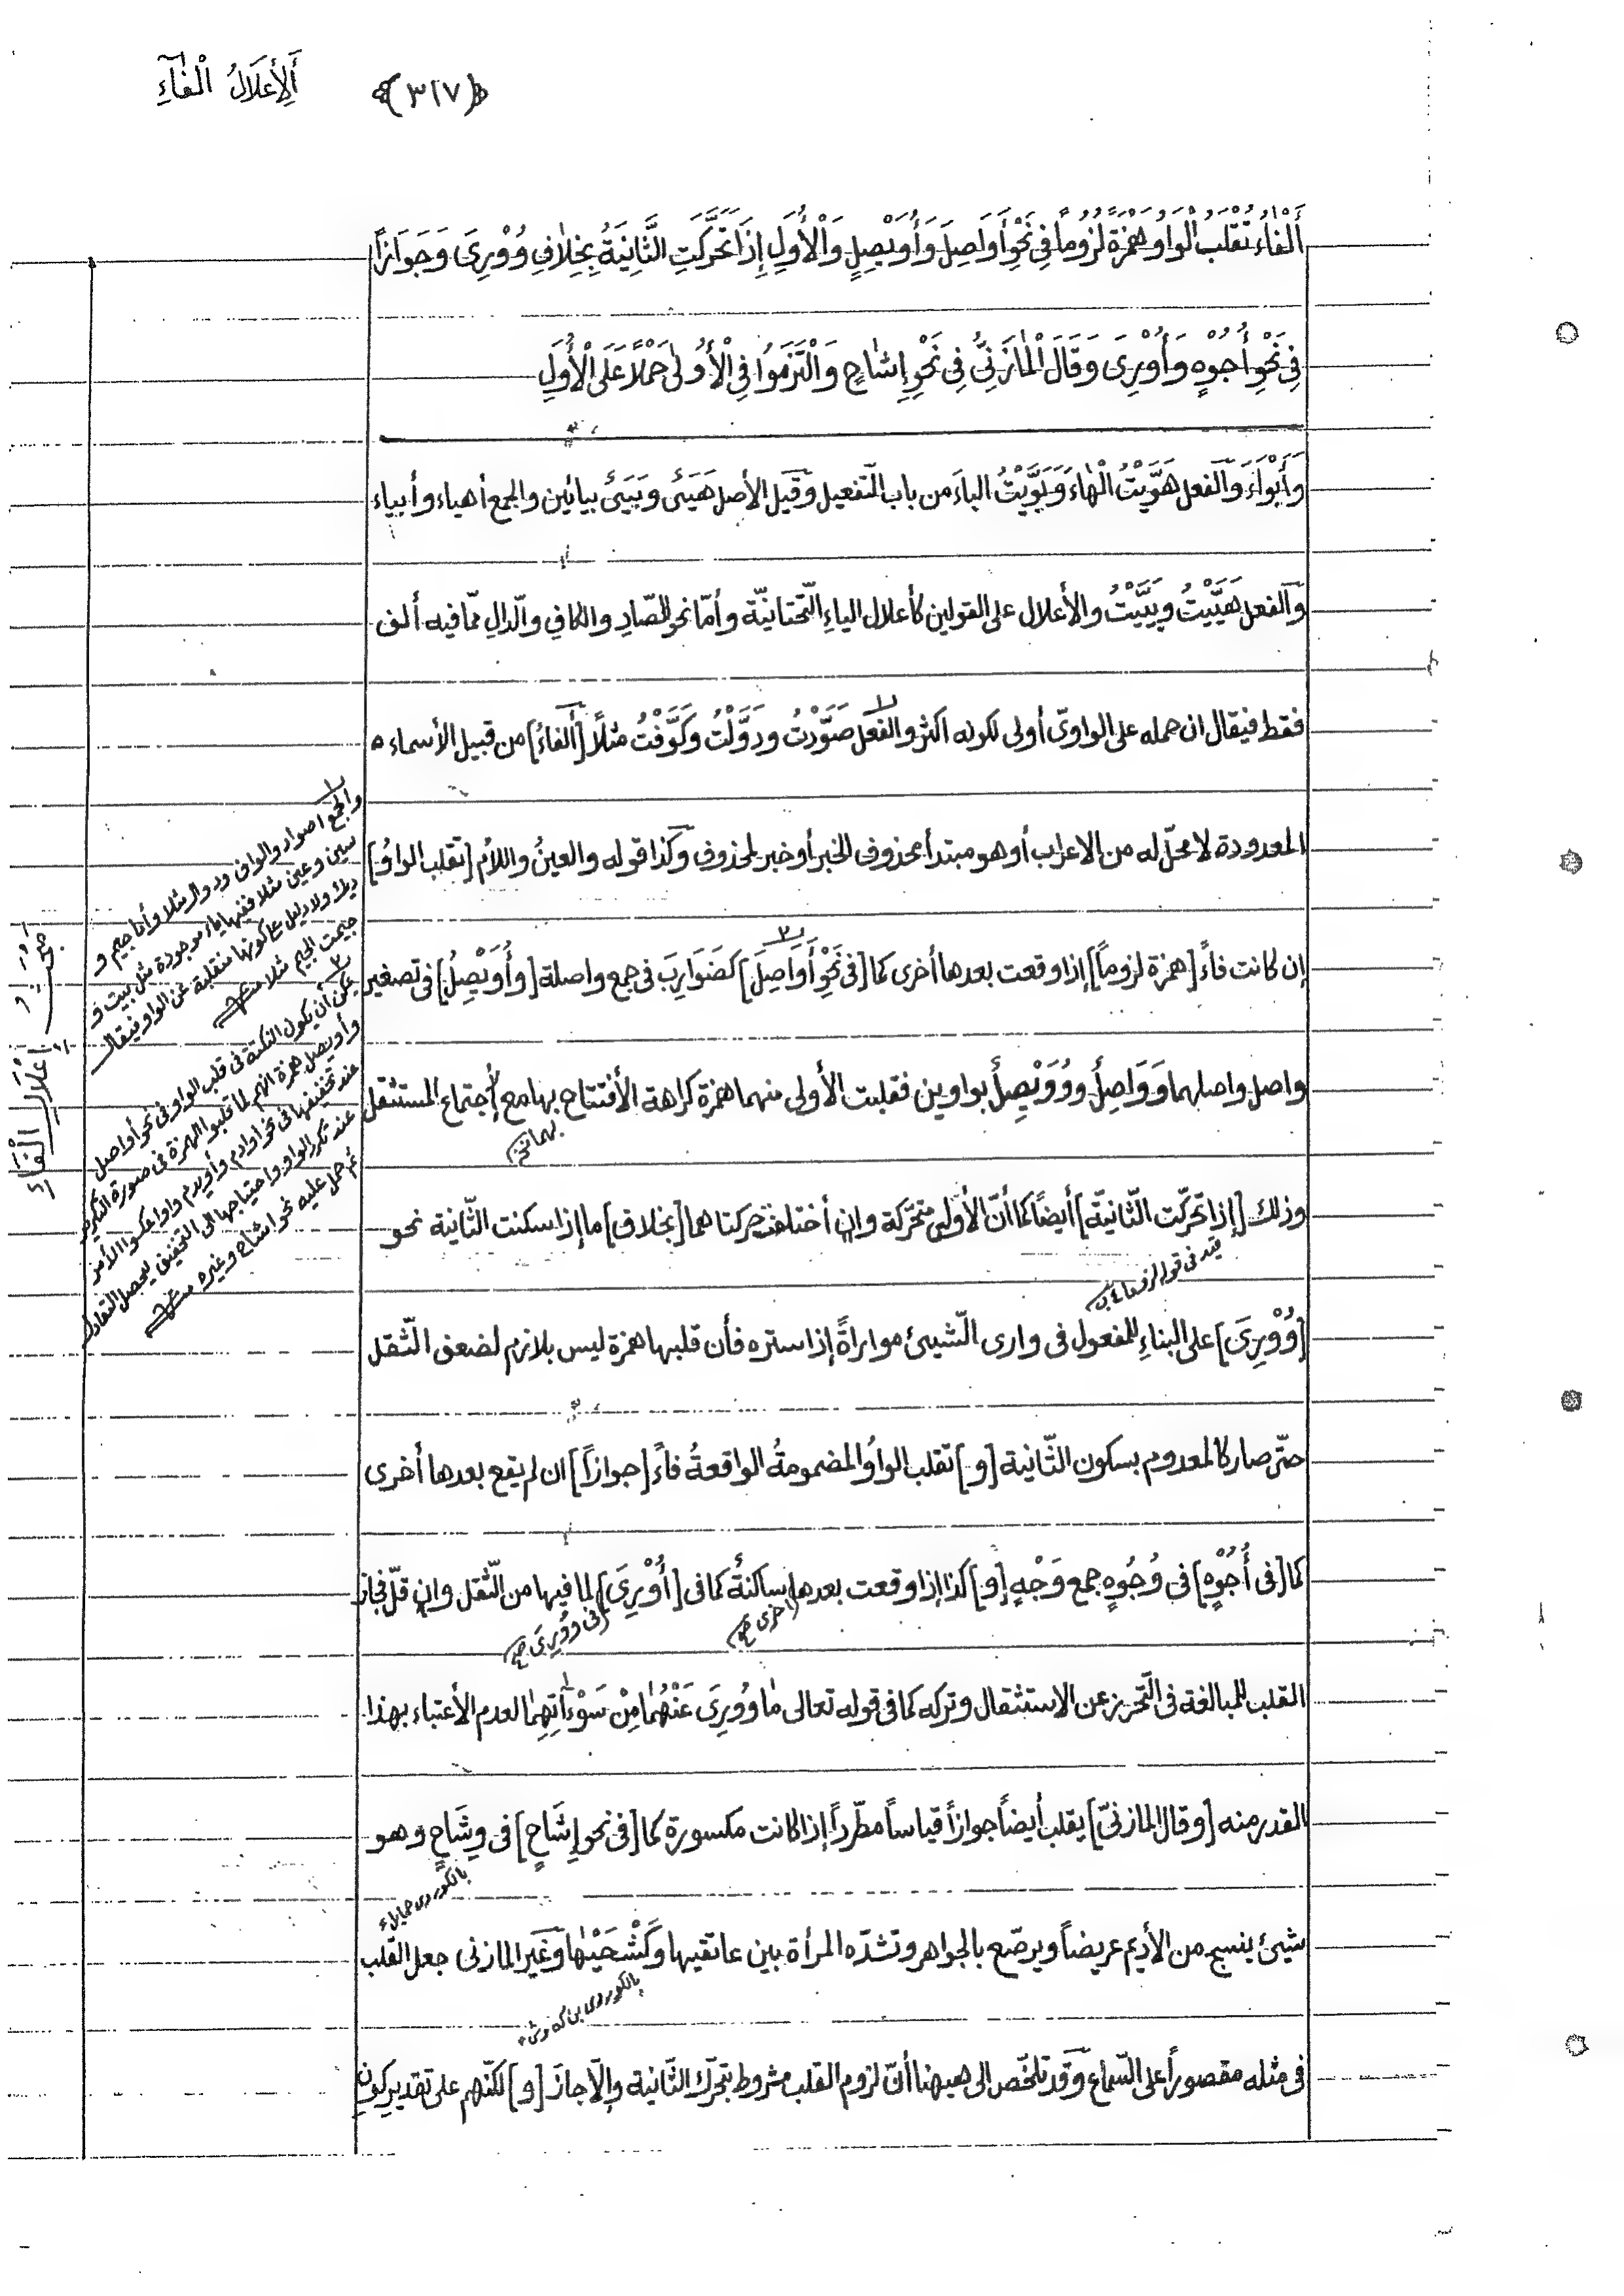 ﴿٣١٧﴾ أَلْأَعْلَالُ الْفَاءِ
أَلْفَاءُ تُقْلَبُ الْوَاوُ هَمْزَةً لُزُومًا فِي نَحْوِ أَوَاصِلَ وَأُوَيْصِلٍ وَالْأُوَلِ إِذَا تَحَرَّكَتِ الثَّانِيَةُ بِخِلَافِ وُوْرِىَ وَجَوَازًا
فِي نَحْوِ أُجُوْهٍ وَأُوْرِىَ وَقَالَ الْمَازَنِيُّ فِي نَحْوِ إِشَاحٍ وَالْتَزَمُوا فِي الْأُولَى حَمْلًا عَلَى الْأُوَلِ
وَأَبْوَاءَ وَالْفعل هَوَّيْتُ الْهَاءَ وَبَوَّيْتُ الباءَ من باب التّفعيل وقيل الأصل هَيَئ وبَيَئ بيائين والجمع أهياء وأبياء
والفعل هَيَّيْتُ وبَيَّيْتُ والأعلال على القولين كأعلال الياءِ التّحتانيّة وأمّا نحو الصّادِ والكافِ والدّالِ ممّا فيه ألف
فقط فيقال ان حمله على الواويّ أولى لكونه اكثر والفعل صَوَّدْتُ ودَوَّلْتُ وكَوَّفْتُ مثلًا [أَلفاءُ] من قبيل الأسماء
المعدودة لا محلّ له من الاعراب أو هو مبتدأ محذوف الخبر أو خبر لمحذوف وكذا قوله والعينُ واللاّم [تقلب الواوُ]
إن كانت فاءً [همزة لزوماً] إذا وقعت بعدها أخرى كما [فى نَحْوِ أَوَاصِلَ] كضَوَارِبَ فى جمع واصلة [وأُوَيْصِلُ] فى تصغير
واصل واصلهما وَوَاصِلُ ووُوَيْصِلُ بواوين فقلبت الأولى منهما همزة كراهة الأفتتاح بها مع إجتماع المستثقل
وذلك [إذا تحرّكت الثّانيّة] أيضاً كما أنّ الأولى متحرّكة وان أختلفت حركتاهما [بخلاف] ما إذا سكنت الثّانية نحو
[وُوْرِىَ] على البناءِ للمفعول فى وارى الشّيئ مواراةً إذا ستره فأن قلبها همزة ليس بلازم لضعف الثّقل
حتّى صار كالمعدوم بسكون الثّانية [و] تقلب الواوُ المضمومةُ الواقعةُ فاءً [جوازاً] ان لم يقع بعدها أخرى
كما [فى أُجُوْهٍ] فى وُجُوهٍ جمع وَجْهٍ [و] كذا إذا وقعت بعدها ساكنةٌ كما فى [أُوْرِىَ] لما فيها من الثّقل وان قلّ فجاز
(اخرى صح)
(فى وُوْرِىَ صح)
القلب للمبالغة فى التّحرز عن الاستثقال وتركه كما فى قوله تعالى مٰا وُورِىَ عَنْهُمٰا مِنْ سَوْءٰاتِهِمٰا لعدم الأعتباء بهذا
القدر منه [وقال المازنيّ] يقلب أيضاً جوازاً قياساً مطّرداً إذا كانت مكسورة كما [فى نحو إِشَاحٍ] فى وِشَاحٍ وهو
شيئ ينسج من الأديم عريضاً ويرصّع بالجواهر وتشدّه المرأة بين عاتقيها وكَشْحَيْهٰا وغير المازنى جعل القلب
فى مثله مقصوراً على السّماع وقد تلخّص الى هيهنا أنّ لزوم القلب مشروط بتحرّك الثّانية وإلّا جاز [و] لكنّهم على تقدير كونِ
والجمع اصوار والواف ودوال مثلا وأما جيم و
سين وعين مثلا ففيها ياء موجودة مثل بيت و
ديك ولا دليل ع كونها منقلبة عن الواو فيقال
جيمت الجيم مثلا منه
يمكن أن يكون النكتة فى قلب الواو فى نحو أواصل
وأويصل همزة انهم لما قلبوا الهمزة فى صورة التكرير
عند تخفيفها فى نحو اوادم وأويدم واوا عكسوا الأمر
عند تكرر الواو واحتياجها الى التخفيف ليحصل التعادل
ثم حمل عليه نحو اشاح وغيره منه
مَبْحَثُ إعْلَالِ الْفَاءِ